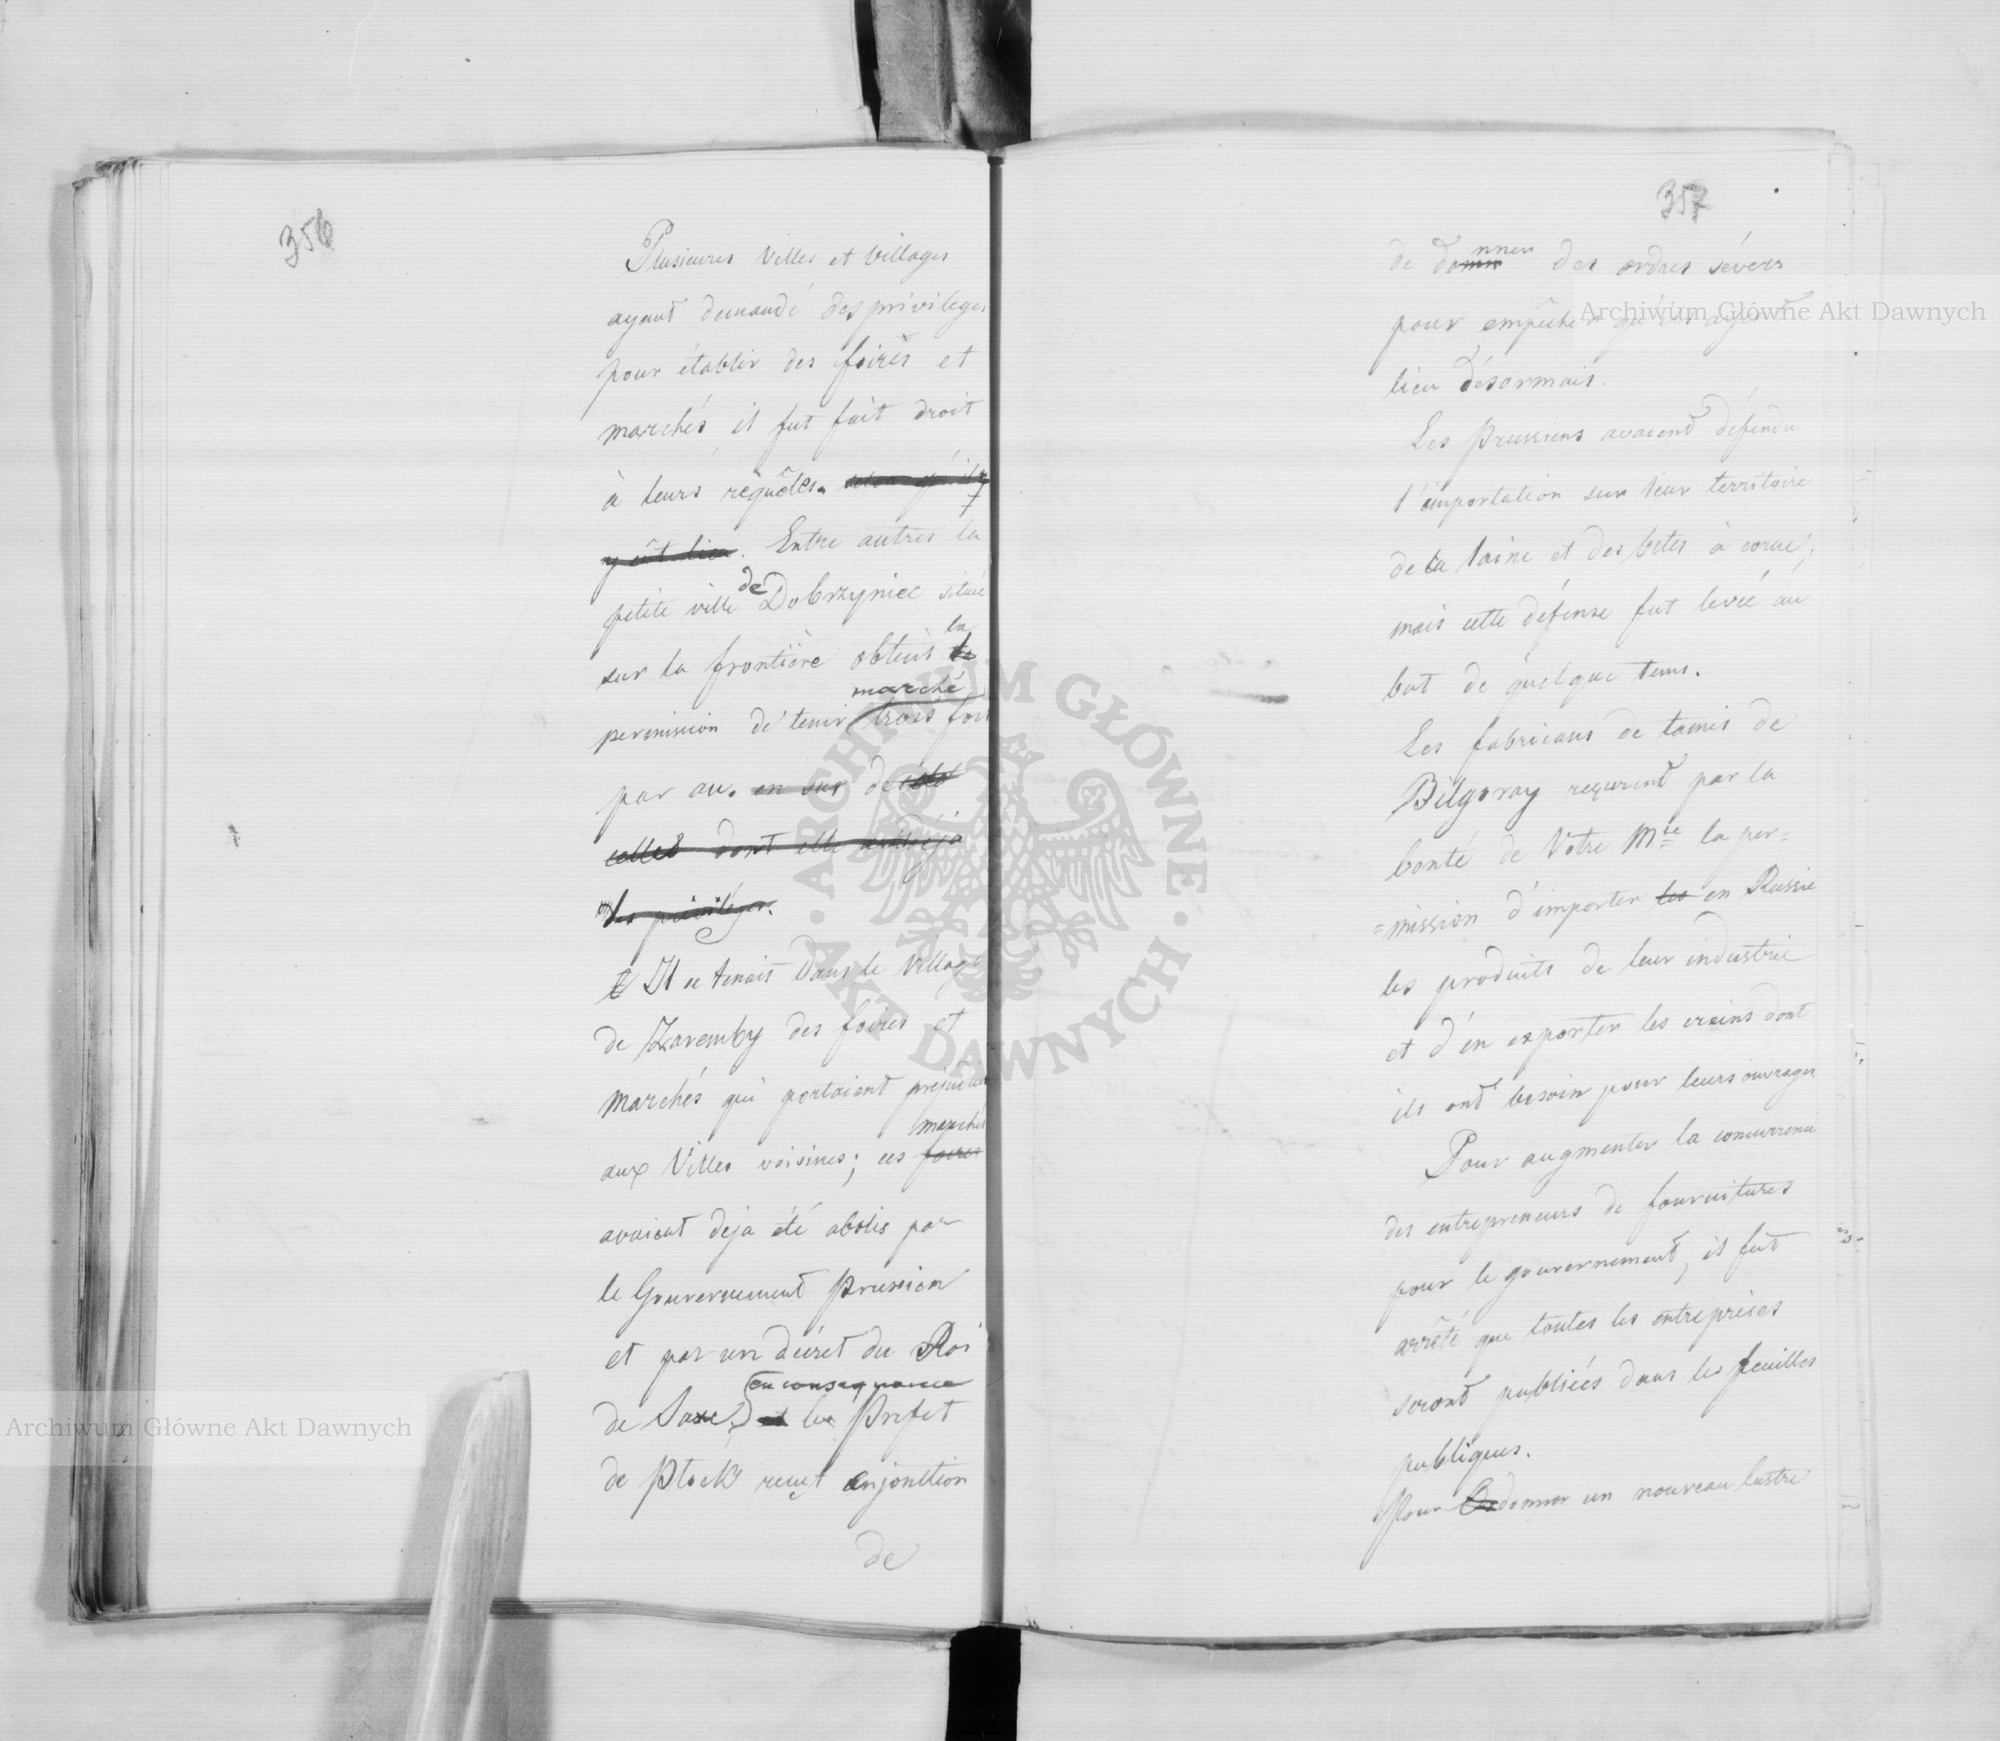 356
Plusieures Villes et Villages
ayant demandé des privileges
pour établir des foires et
marchés il fut fait droit
à leurs requêtes. selon qu'il
y eût lieu. Entre autres la
petite ville de Dobrzyniec située
sur la frontière obtint la
permission de tenir marché trois fois
par an. en sus de
celles dont elle avait déja
les privilèges.
Il se tenait dans le Village
de Zaremby des foires et
marchés qui portaient préjudice
aux Villes voisines; ces foires marchés
avaient déja été abolis par
le Gouvernement prussien
et par un décret du Roi
de Saxe, et en consequence le Préfet
de Plock reçut enjonction
de
357
de donner des ordres sévers
pour empêcher qu'
lieu désormais.
Les prussiens avaient défendu
l'importation sur leur territoire
de la laine et des bêtes à corne,
mais cette défense fut levée au
bout de quelque tems.
Les fabricans de tamis de
Bilgoray reçurent par la
bonté de Votre Mté la per=
=mission d'importer les en Russie
les produits de leur industrie
et d'en exporter les crains dont
ils ont besoin pour leurs ouvrages
Pour augmenter la concurrence
des entrepreneurs de fournitures
pour le gouvernement, il fut
arrêté que toutes les entreprises
seront publiées dans les feuilles
publiques.
Pour donner un nouveau lustre
Archiwum Główne Akt Dawnych
Archiwum Główne Akt Dawnych
ARCHIWUM GŁÓWNE · AKT DAWNYCH ·